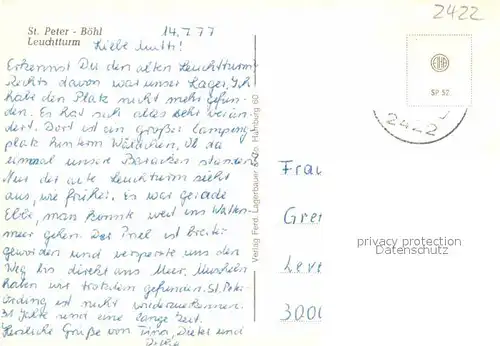 2422
St. Peter - Böhl
Leuchtturm
14.7.77
Liebe Mutti!
Erkennst Du den alten Leuchtturm?
Rechts davon war unser Lager. Ich
habe den Platz nicht mehr gefun-
den. Es hat sich alles sehr verän-
dert. Dort ist ein großer Camping
platz hinterm Wäldchen, Ob da
einmal unsere Baracken standen
Nur der alte Leuchtturm sieht
aus, wie früher. Es war gerade
Ebbe, man konnte weit ins Watten-
meer gehen. Der Priel ist breiter
geworden und versperrte uns den
Weg bis direkt ans Meer. Muscheln
haben wir trotzdem gefunden. St. Peter
Ording ist nicht wiederzuerkennen.
Jahre sind eine lange Zeit.
Herzliche Grüße von Tina, Dieter und
Verlag Ferd. Lagerbauer & Co. Hamburg 60
SP 52
2422
Frau
Gre
Leve
3000
privacy protection
Datenschutz